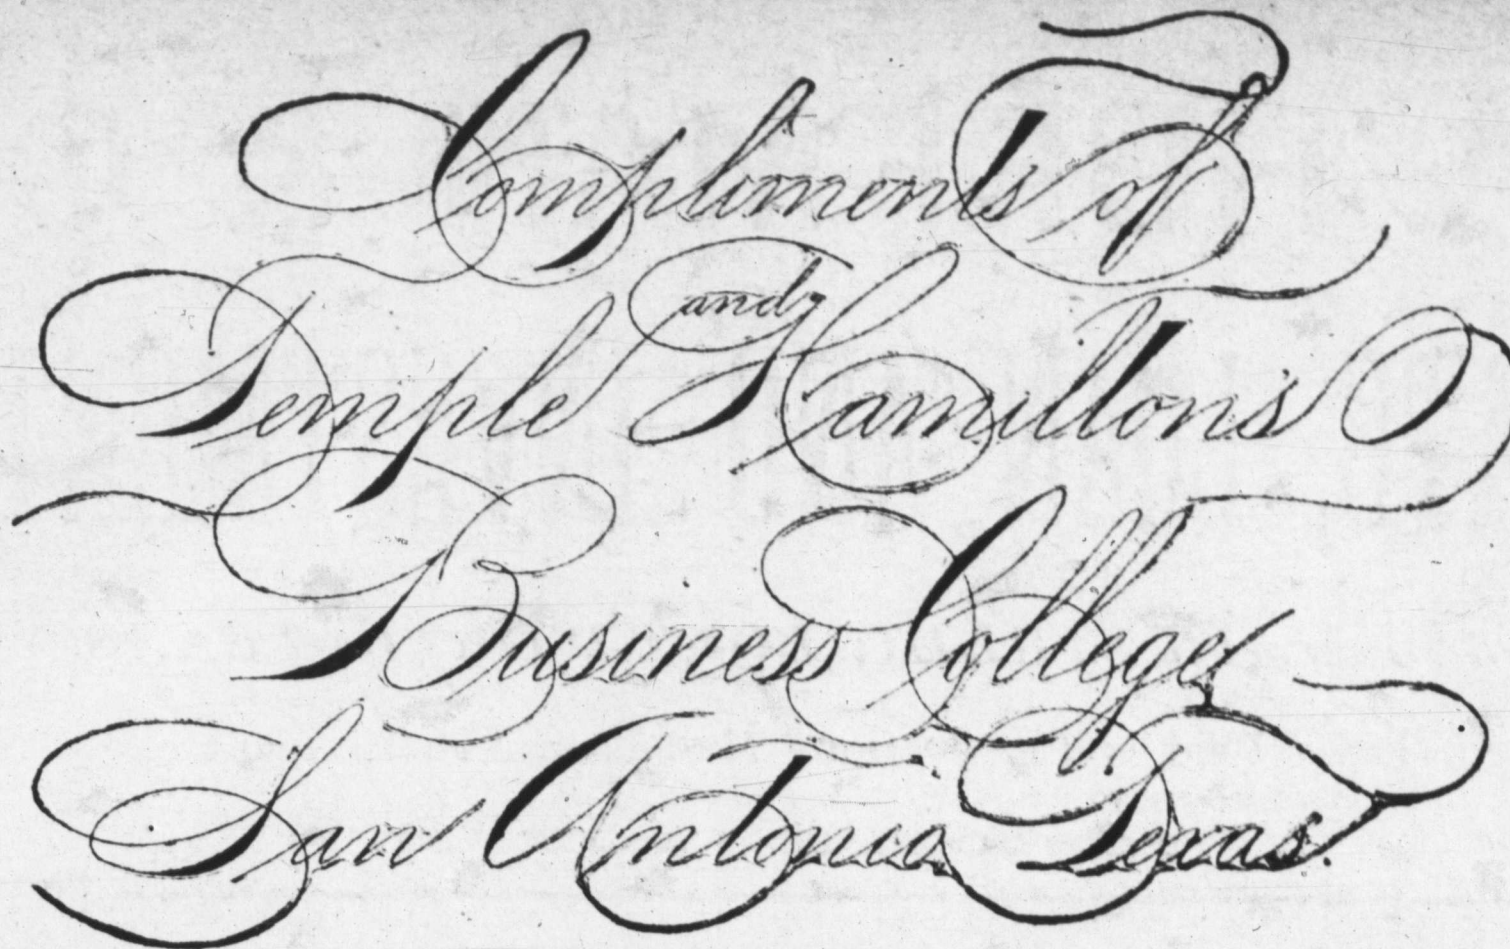 Compliments of
Temple and Hamiltons
Business College
San Antonio, Texas.